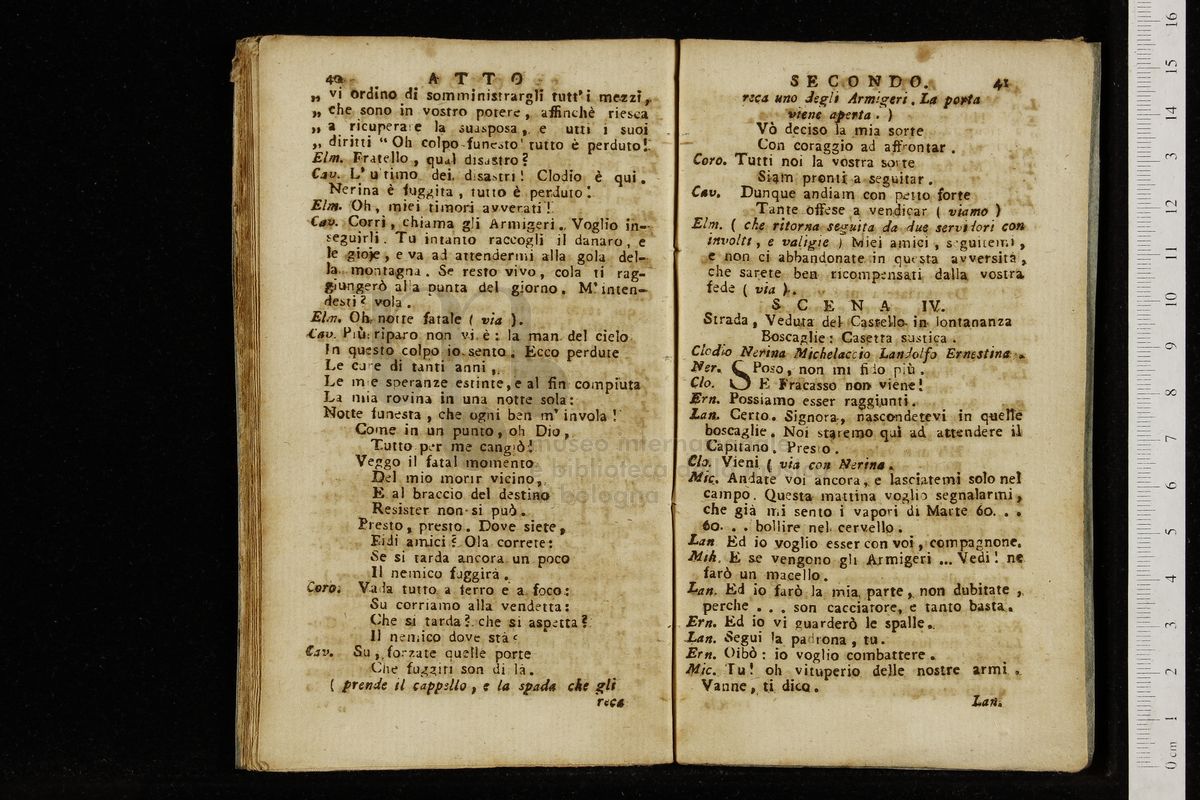 40 ATTO
„ vi ordino di somministrargli tutt'i mezzi,
„ che sono in vostro potere, affinchè riesca
„ a ricuperare la suasposa, e utti i suoi
„ diritti “ Oh colpo funesto! tutto è perduto!
Elm. Fratello, qual disastro?
Cav. L'ultimo dei disastri! Clodio è qui.
Nerina è fuggita, tutto è perduto!
Elm. Oh, miei timori avverati!
Cav. Corri, chiama gli Armigeri. Voglio in-
seguirli. Tu intanto raccogli il danaro, e
le gioje, e va ad attendermi alla gola del-
la montagna. Se resto vivo, cola ti rag-
giungerò alla punta del giorno. M'inten-
desti? vola.
Elm. Oh notte fatale ( via ).
Cav. Più riparo non vi è: la man del cielo
In questo colpo io sento. Ecco perdute
Le cure di tanti anni,
Le mie speranze estinte, e al fin compiuta
La mia rovina in una notte sola:
Notte funesta, che ogni ben m'invola!
Come in un punto, oh Dio,
Tutto per me cangiò!
Veggo il fatal momento
Del mio morir vicino,
E al braccio del destino
Resister non si può.
Presto, presto. Dove siete,
Fidi amici? Ola correte:
Se si tarda ancora un poco
Il nemico fuggirà.
Coro. Vada tutto a ferro e a foco:
Su corriamo alla vendetta:
Che si tarda? che si aspetta?
Il nemico dove stà?
Cav. Su, forzate quelle porte
Che fuggiti son di là.
( prende il cappello, e la spada che gli
reca
SECONDO. 41
reca uno degli Armigeri. La porta
viene aperta. )
Vò deciso la mia sorte
Con coraggio ad affrontar.
Coro. Tutti noi la vostra sorte
Siam pronti a seguitar.
Cav. Dunque andiam con petto forte
Tante offese a vendicar ( viamo )
Elm. ( che ritorna seguita da due servidori con
involti, e valigie ) Miei amici, seguitemi,
e non ci abbandonate in questa avversità,
che sarete ben ricompensati dalla vostra
fede ( via ).
SCENA IV.
Strada, Veduta del Castello in lontananza
Boscaglie: Casetta sustica.
Clodio Nerina Michelaccio Landolfo Ernestina.
Ner. SPoso, non mi fido più.
Clo. E Fracasso non viene!
Ern. Possiamo esser raggiunti.
Lan. Certo. Signora, nascondetevi in quelle
boscaglie. Noi staremo quì ad attendere il
Capitano. Presto.
Clo. Vieni ( via con Nerina.
Mic. Andate voi ancora, e lasciatemi solo nel
campo. Questa mattina voglio segnalarmi,
che già mi sento i vapori di Marte 60. . .
60. . . bollire nel cervello.
Lan Ed io voglio esser con voi, compagnone.
Mih. E se vengono gli Armigeri ... Vedi! ne
farò un macello.
Lan. Ed io farò la mia parte, non dubitate,
perche . . . son cacciatore, e tanto basta.
Ern. Ed io vi guarderò le spalle.
Lan. Segui la padrona, tu.
Ern. Oibò: io voglio combattere.
Mic. Tu! oh vituperio delle nostre armi.
Vanne, ti dico.
Lan.
museo internazionale
e biblioteca della musica
bologna
0 cm 1 2 3 4 5 6 7 8 9 10 11 12 13 14 15 16